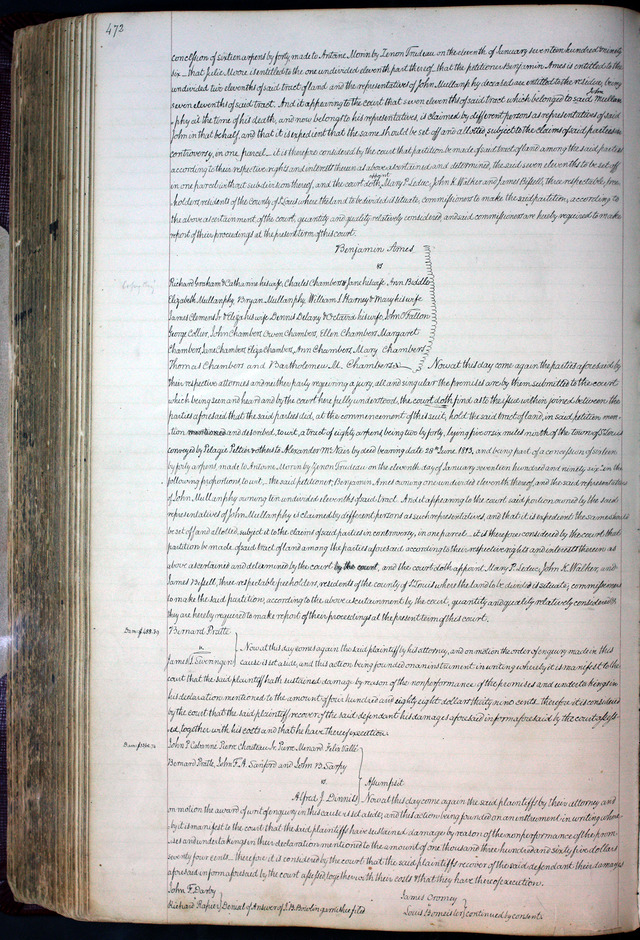 472
concession of sixteen arpens by forty made to Antoine Morin by Zenon Trudeau on the eleventh of January seventeen hundred & ninety
six — that Julie Moore is entitled to the one undivided eleventh part thereof, that the petitioner Benjamin Ames is entitled to the
undivided two elevenths of said tract of land and the representatives of John Mullanphy deceased are entitled to the residue, being
seven elevenths of said tract. And it appearing to the court that seven elevenths of said tract which belonged to said John Mullan-
phy at the time of his death, and now belongs to his representatives, is claimed by different persons as representatives of said
John in that behalf, and that it is expedient that the same should be set off and allotted, subject to the claims of said parties in
controversy, in one parcel — it is therefore considered by the court that partition be made of said tract of land among the said parties
according to their respective rights and interests therein as above ascertained and determined, the said seven elevenths to be set off
in one parcel without subdivision thereof, and the court doth appoint Mary P. Leduc, John K. Walker and James Bissell, three respectable free-
holders, residents of the county of St Louis where the land to be divided is situate, commissioners to make the said partition, according to
the above ascertainment of the court, quantity and quality relatively considered, and said commissioners are hereby required to make
report of their proceedings at the present term of this court.
Benjamin Ames
vs
Richard Graham & Catharine his wife, Charles Chambers & Jane his wife, Ann Biddle
Elizabeth Mullanphy, Bryan Mullanphy, William S. Harney & Mary his wife
James Clemens Jr & Eliza his wife, Dennis Delany & Octavia his wife, John O'Fallon
George Collier, John Chambers, Owen Chambers, Ellen Chambers, Margaret
Chambers, Jane Chambers, Eliza Chambers, Ann Chambers, Mary Chambers
Thomas Chambers and Bartholomew M. Chambers Now at this day come again the parties aforesaid by
their respective attornies and neither party requiring a jury, all and singular the premises are by them submitted to the court
which being seen and heard and by the court here fully understood, the court doth find as to the issue within joined between the
parties aforesaid that the said parties did, at the commencement of this suit, hold the said tract of land, in said petition men-
tion mentioned and described, to wit, a tract of eighty arpens being two by forty, lying five or six miles north of the town of St Louis
conveyed by Pelagie Pellier & others to Alexander McNair by deed bearing date 28th June 1813, and being part of a concession of sixteen
by forty arpens, made to Antoine Morin by Zenon Trudeau on the eleventh day of January seventeen hundred and ninety six in the
following proportions to wit, — the said petitioner, Benjamin Ames owning one undivided eleventh thereof, and the said representatives
of John Mullanphy owning ten undivided elevenths of said tract. And it appearing to the court said portion owned by the said
representatives of John Mullanphy is claimed by different persons as such representatives, and that it is expedient the same should
be set off and allotted, subject to the claims of said parties in controversy, in one parcel — it is therefore considered by the court that
partition be made of said tract of land among the parties aforesaid according to their respective rights and interests therein as
above ascertained and determined by the court by the court, and the court doth appoint Mary P. Leduc, John K. Walker, and
James Bissell, three respectable freeholders, residents of the county of St Louis where the land to be divided is situate, commissioners
to make the said partition, according to the above ascertainment by the court, quantity and quality relatively considered &
they are hereby required to make report of their proceedings at the present term of this court.
Bernard Pratte
vs
Now at this day comes again the said plaintiff by his attorney, and on motion the order of enquiry made in this
James L. Swearingen cause is set aside, and this action being founded on an instrument in writing whereby it is manifest to the
court that the said plaintiff hath sustained damage by reason of the nonperformance of the promises and undertakings in
his declaration mentioned to the amount of four hundred and eighty eight dollars thirty nine cents. therefore it is considered
by the court that the said plaintiff recover of the said defendant his damages aforesaid in form aforesaid by the court assess-
ed, together with his costs and that he have thereof execution.
John P. Cabanne, Pierre Chouteau Jr. Pierre Menard Felix Vallé
Bernard Pratte, John F. A. Sanford and John B. Sarpy
vs. Assumpsit
Alfred J. Dinnis Now at this day come again the said plaintiffs by their attorney and
on motion the award of writ of enquiry in this cause is set aside, and this action being founded on an instrument in writing where-
by it is manifest to the court that the said plaintiffs have sustained damage by reason of the nonperformance of the prom-
ises and undertakings in their declaration mentioned to the amount of one thousand three hundred and sixty five dollars
seventy four cents — therefore it is considered by the court that the said plaintiffs recover of the said defendant their damages
aforesaid in form aforesaid by the court assessed together with their costs & that they have thereof execution.
John F. Darby
Richard Rapier Denial of Answer of J. B. Bowlin garnishee filed
James Cromey
Louis Bomeisler continued by consent